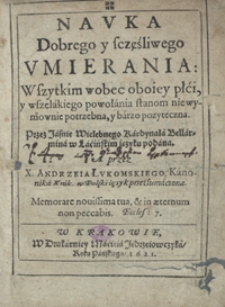 NAVKA
Dobrego y sczęśliwego
VMIERANIA:
Wszytkim wobec oboiey płći,
y wszelakiego powołánia stanom niewy-
mownie potrzebna, y bárzo pozyteczna.
Przez Jáśnie Wielebnego Kárdynałá Bellár-
miná w Łáćińskim ięzyku podána.
X. ANDRZEIA ŁVKOMSKIEGO, Káno-
niká w Polski ięzyk przetłumáczona.
Memorare nouissima tua, & in æternum
non peccabis. Eccles: 7.
W KRAKOWIE,
W Drukárniey Máćieiá Jędrzeiowczyká,
Roku Páńskiego: 1621.